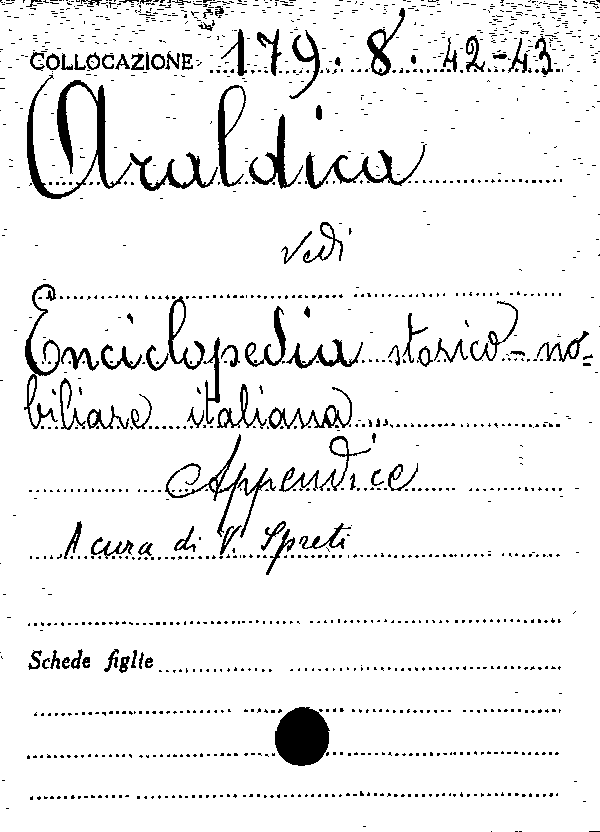 COLLOCAZIONE 179. 8. 42-43
Araldica
vedi
Enciclopedia storico-no=
biliare italiana...
Appendice
A cura di V. Spreti
Schede figlie